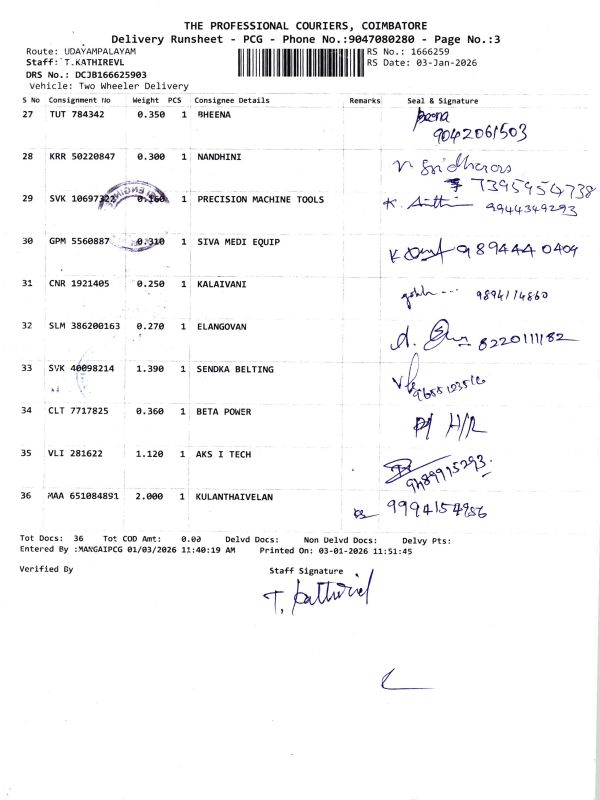 THE PROFESSIONAL COURIERS, COIMBATORE
Delivery Runsheet - PCG - Phone No.:9047080280 - Page No.:3
Route: UDAYAMPALAYAM RS No.: 1666259
Staff: T.KATHIREVL RS Date: 03-Jan-2026
DRS No.: DCJB166625903
Vehicle: Two Wheeler Delivery
S No Consignment No Weight PCS Consignee Details Remarks Seal & Signature
27 TUT 784342 0.350 1 BHEENA Beena
9042061503
28 KRR 50220847 0.300 1 NANDHINI
7395954738
29 SVK 10697322 0.160 1 PRECISION MACHINE TOOLS 9944349293
30 GPM 5560887 0.310 1 SIVA MEDI EQUIP 989444 0409
31 CNR 1921405 0.250 1 KALAIVANI 9894114860
32 SLM 386200163 0.270 1 ELANGOVAN 8220111182
33 SVK 40098214 1.390 1 SENDKA BELTING
34 CLT 7717825 0.360 1 BETA POWER H/R
35 VLI 281622 1.120 1 AKS I TECH
36 MAA 651084891 2.000 1 KULANTHAIVELAN 9994154956
Tot Docs: 36 Tot COD Amt: 0.00 Delvd Docs: Non Delvd Docs: Delvy Pts:
Entered By :MANGAIPCG 01/03/2026 11:40:19 AM Printed On: 03-01-2026 11:51:45
Verified By Staff Signature
T. Kathirvel